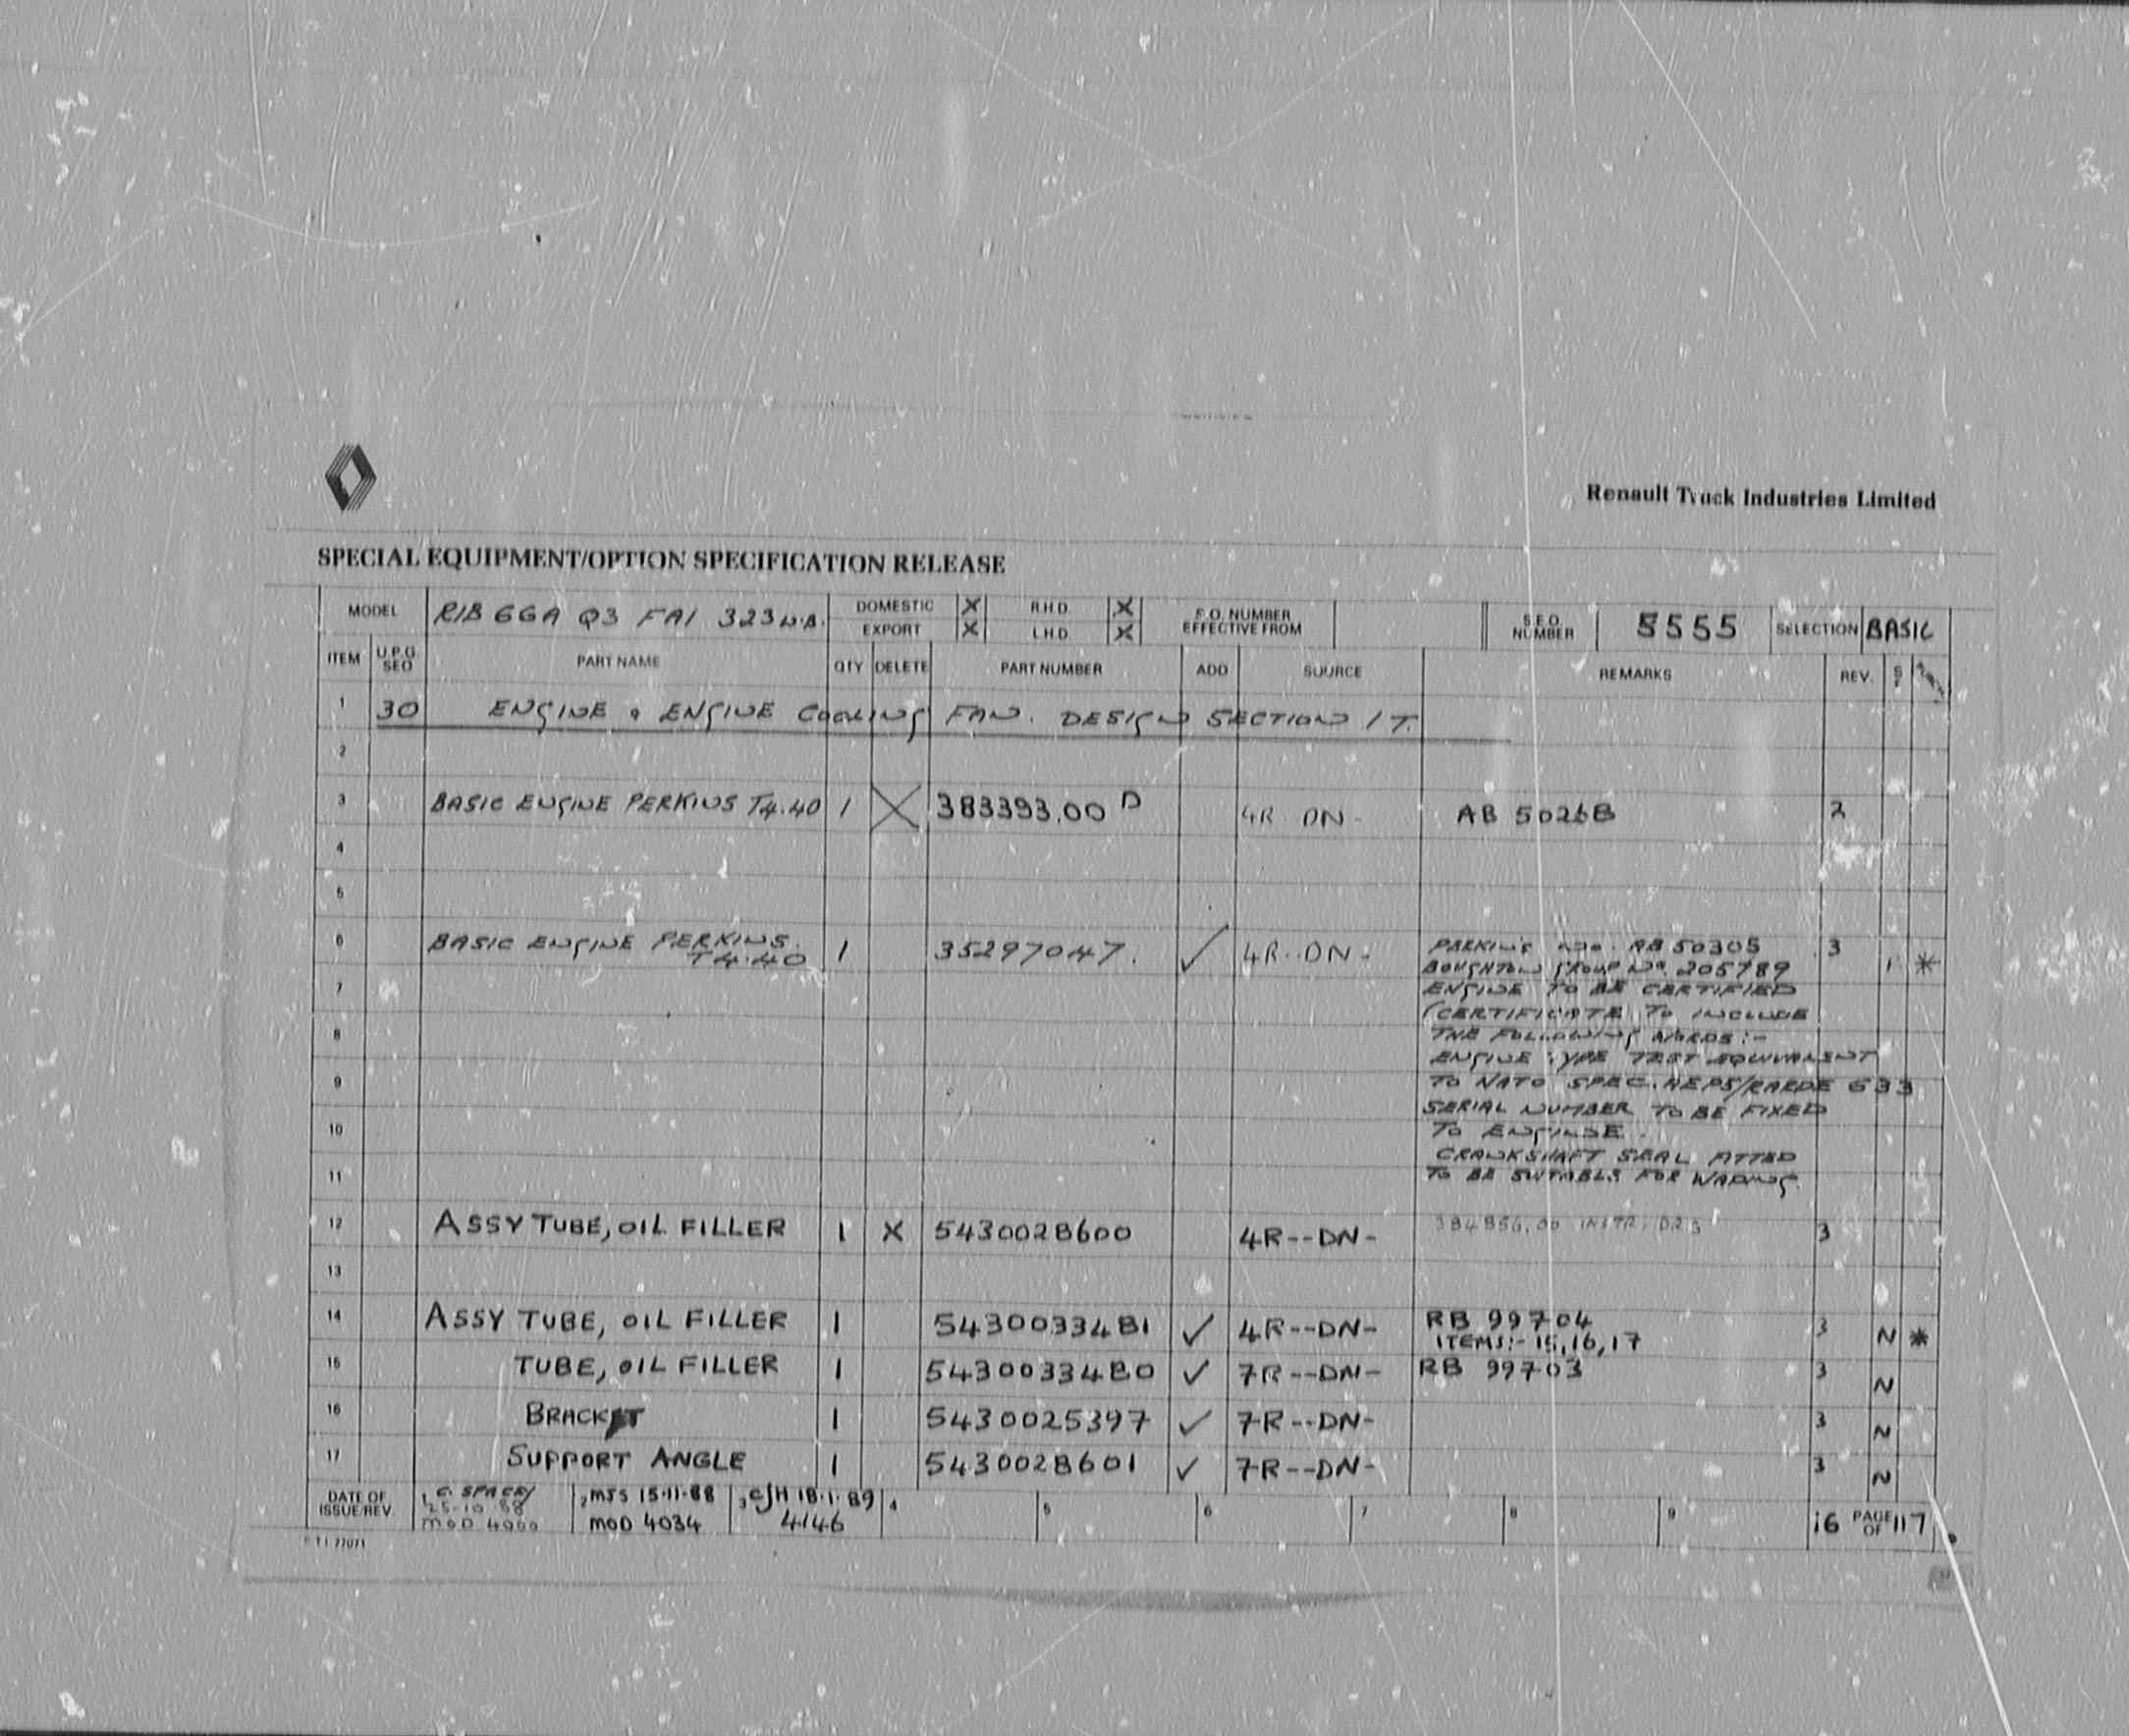 Renault Truck Industries Limited
SPECIAL EQUIPMENT/OPTION SPECIFICATION RELEASE
MODEL RIB 66A Q3 FAI 323 W.B. DOMESTIC X R.H.D. X S.O. NUMBER EFFECTIVE FROM S.E.O. NUMBER 5555 SELECTION BASIC
EXPORT X L.H.D. X
ITEM U.P.G SEQ PART NAME QTY DELETE PART NUMBER ADD SOURCE REMARKS REV.
1 30 ENGINE & ENGINE COOLING FAN. DESIGN SECTION 1T.
2
3 BASIC ENGINE PERKINS T4.40 1 X 383393.00 D 4R DN- AB 5026B 2
4
5
6 BASIC ENGINE PERKINS. T4.40 1 35297047. ✓ 4R--DN- PERKINS NO. AB 50305 3 1 *
BOUGHTON GROUP No. 205789
7 ENGINE TO BE CERTIFIED
(CERTIFICATE TO INCLUDE
8 THE FOLLOWING WORDS:-
ENGINE TYPE TEST EQUIVALENT
9 TO NATO SPEC. AEPS/RARDE 633
SERIAL NUMBER TO BE FIXED
10 TO ENGINE.
CRANKSHAFT SEAL FITTED
11 TO BE SUITABLE FOR WADING.
12 ASSY TUBE, OIL FILLER 1 X 5430028600 4R--DN- 3
13
14 ASSY TUBE, OIL FILLER 1 5430033481 ✓ 4R--DN- RB 99704 3 N *
ITEMS:- 15,16,17
15 TUBE, OIL FILLER 1 5430033480 ✓ 7R--DN- RB 99703 3 N
16 BRACKET 1 5430025397 ✓ 7R--DN- 3 N
17 SUPPORT ANGLE 1 5430028601 ✓ 7R--DN- 3 N
DATE OF ISSUE/REV. 1 C. SPACEY 25-10-88 2 MJS 15-11-88 3 CJH 18-1-89 4 5 6 7 8 9 16 PAGE OF 117
MOD 4000 MOD 4034 4146